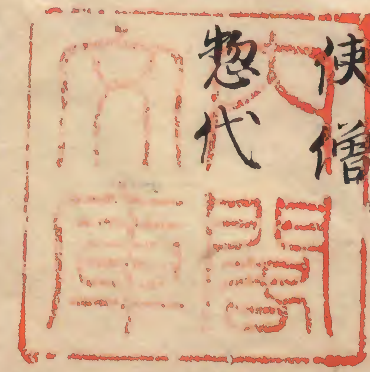 使僧
惣代
内閣
文庫